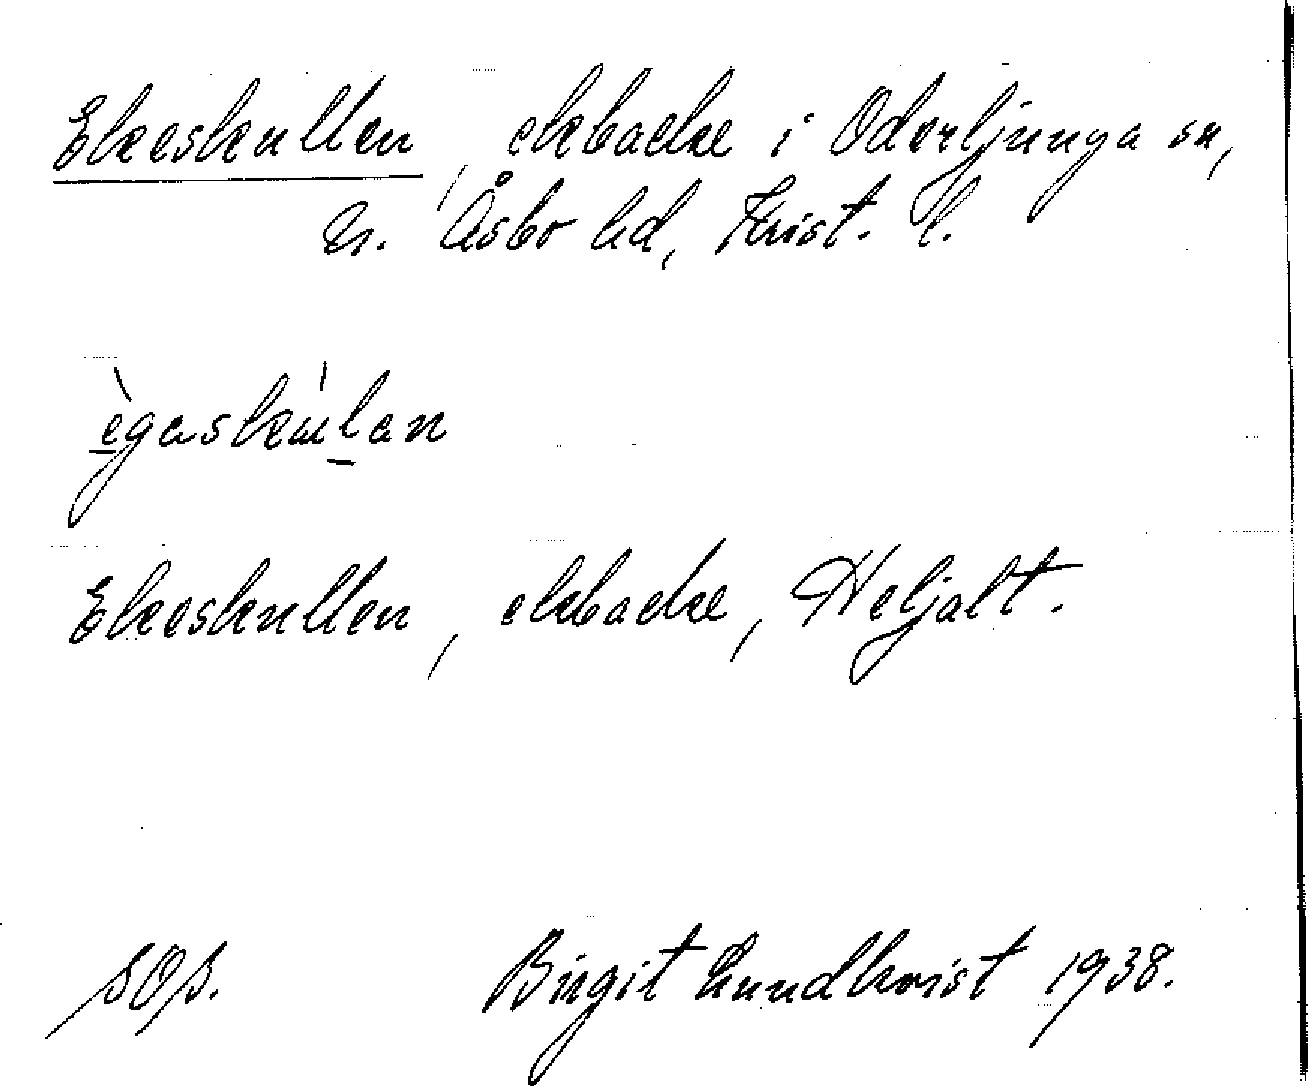 Ekeskullen, ekbacke i Oderljunga sn,
N. Åsbo hd, Krist. l.
ègaskùlan
Ekeskullen, ekbacke, Heljalt.
SOS. Birgit Lundkvist 1938.